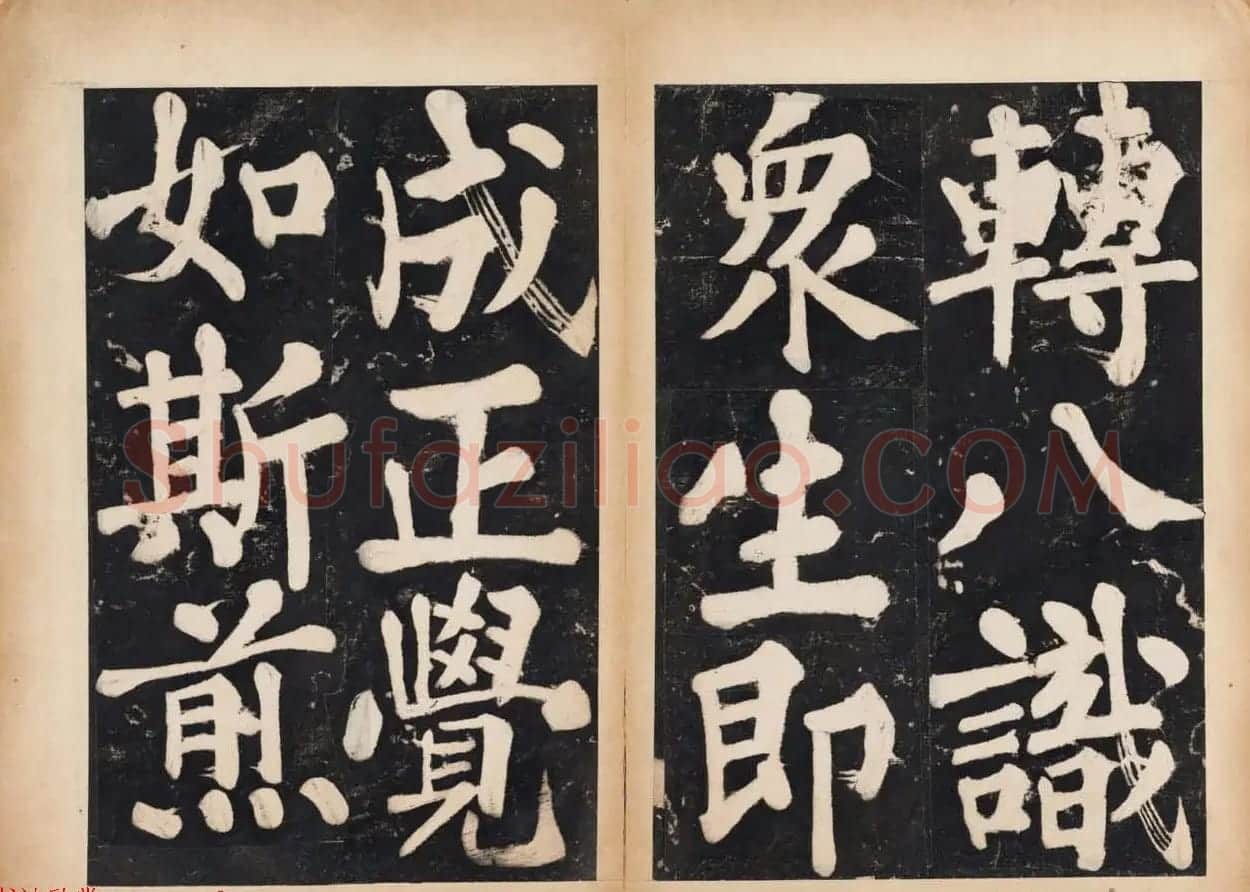 轉八識
衆生即
成正覺
如斯煎
Shufaziliao.COM